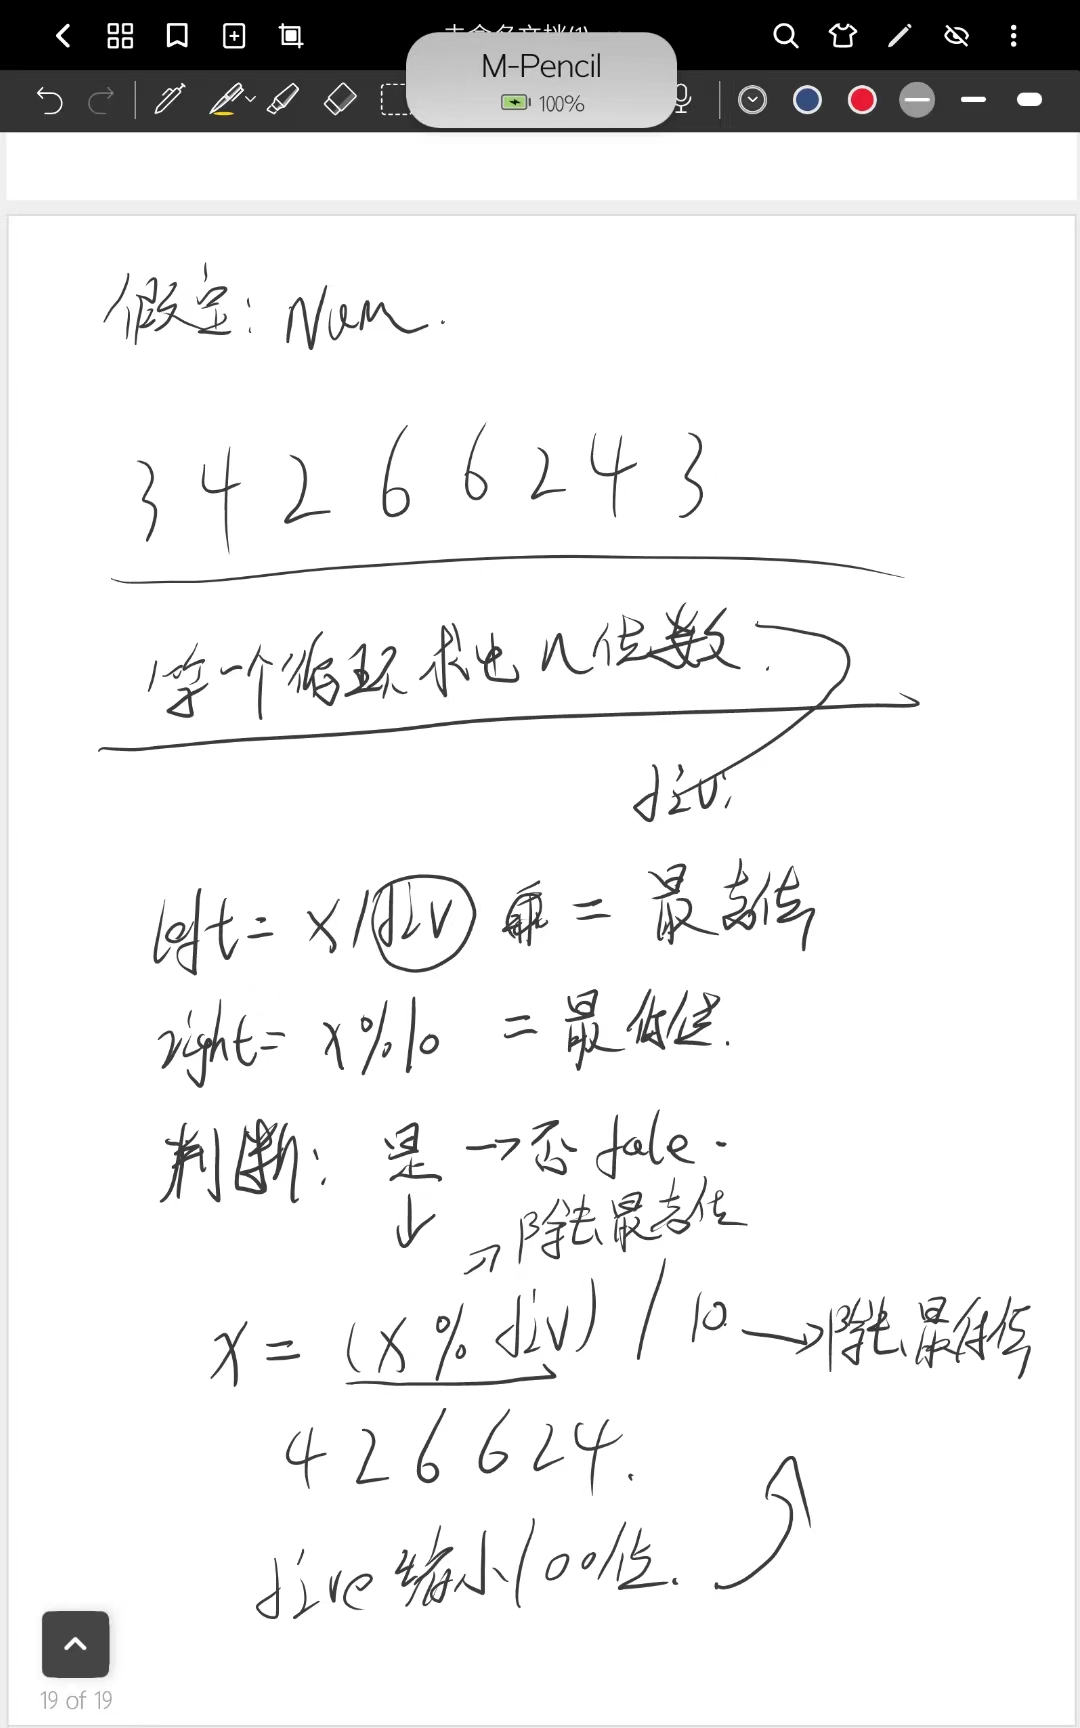 M-Pencil
100%
假定: Num.
3 4 2 6 6 2 4 3
第一个循环求出n位数.
div.
left = x/div = 最高位
right = x%10 = 最低位.
判断: 是 → 否 fale.
↓
→ 除去最高位
x = (x % div) / 10 → 除去最低位
4 2 6 6 2 4.
dive 缩小100位.
19 of 19